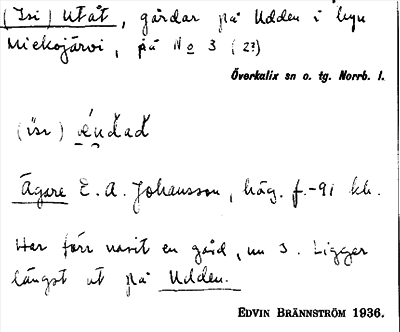 (Isi) Utåt, gårdar på Udden i byn
Miekojärvi, på No 3 (2?)
Överkalix sn o. tg. Norrb. l.
(isi)
Ägare E. A. Johansson, häg. f. -91 kh.
Har förr varit en gård, nu 3. Ligger
längst ut på Udden.
EDVIN BRÄNNSTRÖM 1936.